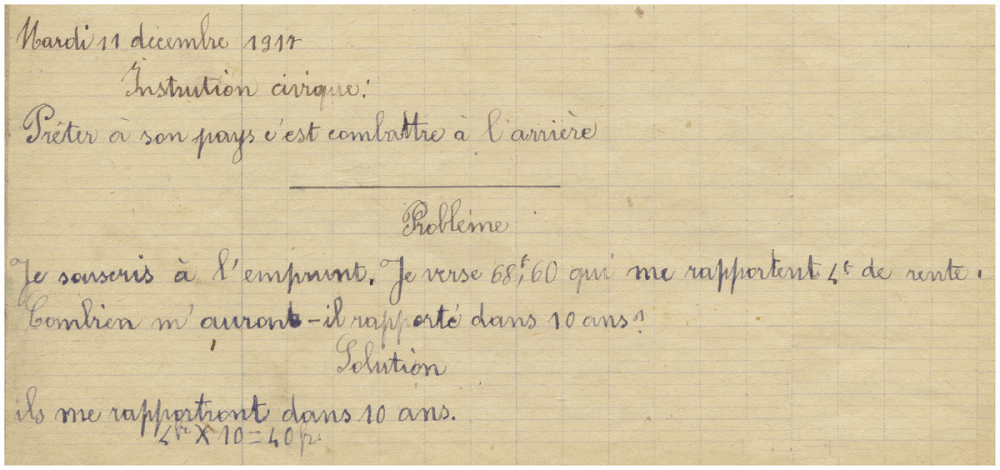 Mardi 11 décembre 1917
Instrution civique:
Prêter à son pays c'est combattre à l'arrière
Problème
Je souscris à l'emprunt. Je verse 68f,60 qui me rapportent 4f de rente.
Combien m'auront-il rapporté dans 10 ans?
Solution
ils me rapportront dans 10 ans.
4fr X 10 = 40 fr.